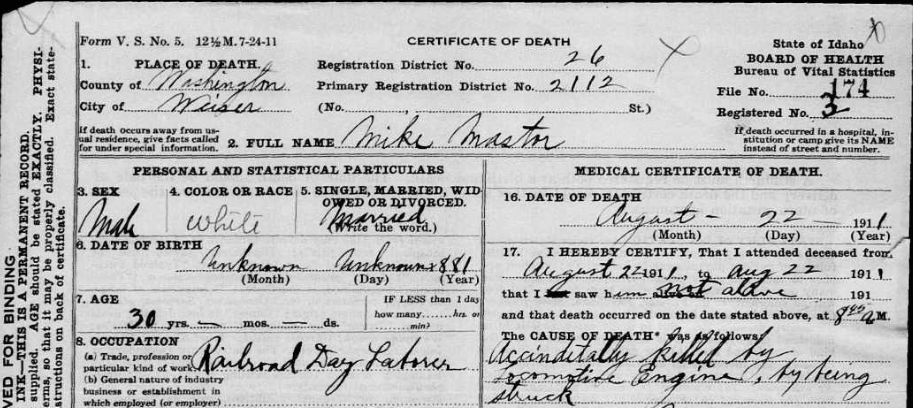 Form V. S. No. 5. 12½ M. 7-24-11
CERTIFICATE OF DEATH
State of Idaho
BOARD OF HEALTH
Bureau of Vital Statistics
File No. 174
Registered No. 3
If death occurred in a hospital, in-
stitution or camp give its NAME
instead of street and number.
1. PLACE OF DEATH.
County of Washington
City of Weiser
If death occurs away from us-
ual residence, give facts called
for under special information.
Registration District No. 26
Primary Registration District No. 2112
(No. St.)
2. FULL NAME Mike Mastor
PERSONAL AND STATISTICAL PARTICULARS
3. SEX
Male
4. COLOR OR RACE
White
5. SINGLE, MARRIED, WID-
OWED OR DIVORCED.
Married
(Write the word.)
6. DATE OF BIRTH
Unknown Unknown 1881
(Month) (Day) (Year)
7. AGE
30 yrs. — mos. — ds.
IF LESS than 1 day
how many hrs. or
min?
8. OCCUPATION
(a) Trade, profession or
particular kind of work Railroad Day Laborer
(b) General nature of industry
business or establishment in
which employed (or employer)
MEDICAL CERTIFICATE OF DEATH.
16. DATE OF DEATH
August — 22 — 1911
(Month) (Day) (Year)
17. I HEREBY CERTIFY, That I attended deceased from
August 22 1911, to Aug 22 1911
that I last saw him alive on not alive 191
and that death occurred on the date stated above, at 8 M.
The CAUSE OF DEATH* was as follows:
Accinditally killed by
Locomotive Engine, by being
struck
VED FOR BINDING
INK—THIS IS A PERMANENT RECORD.
supplied. AGE should be stated EXACTLY. PHYSI-
erms, so that it may be properly classified. Exact state-
structions on back of certificate.